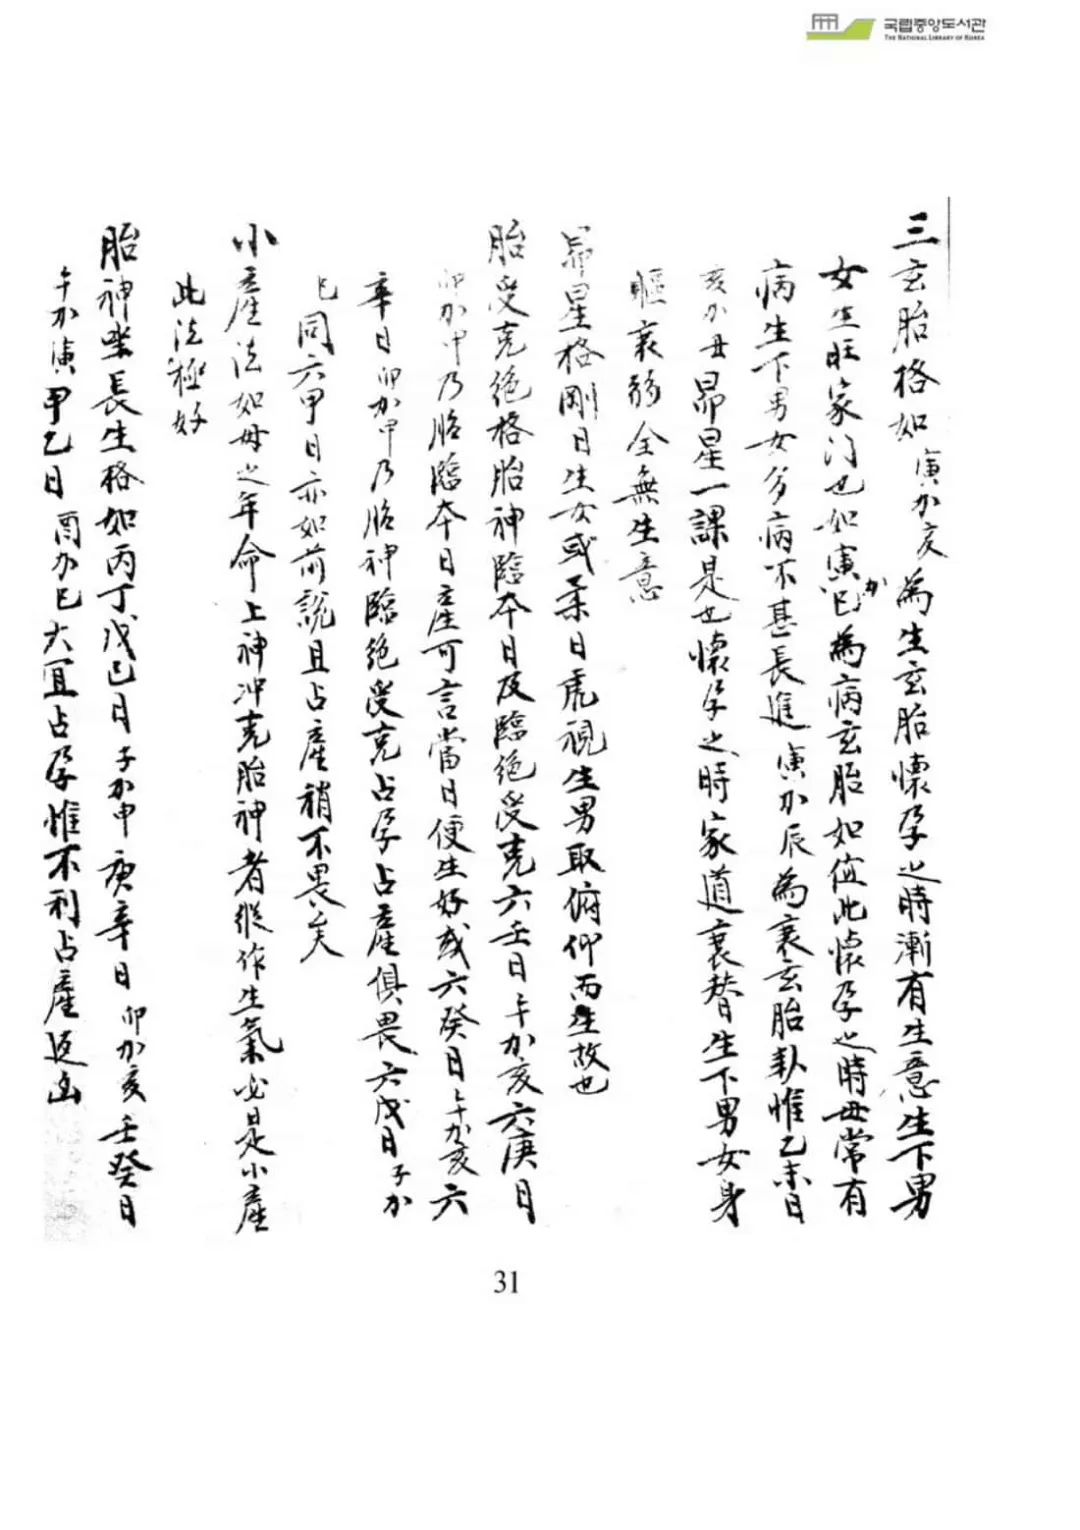 국립중앙도서관
THE NATIONAL LIBRARY OF KOREA
三玄胎格如寅加亥為生玄胎懷孕之時漸有生意生下男
女生旺家门也如寅加巳為病玄胎如值此懷孕之時母常有
病生下男女多病不甚長進寅加辰為衰玄胎卦惟乙未日
亥加丑昴星一課是也懷孕之時家道衰替生下男女身
軀衰弱全無生意
昴星格剛日生女或柔日虎視生男取俯仰而生故也
胎受克绝格胎神臨本日及臨绝受克六壬日午加亥六庚日
卯加申乃胎臨本日産可言當日便生好或六癸日午加亥六
辛日卯加申乃胎神臨绝受克占孕占産俱畏六戊日子加
巳同六甲日亦如前説且占産稍不畏矣
小産法如母之年命上神冲克胎神者縱作生氣必是小産
此法極好
胎神坐長生格如丙丁戊己日子加申庚辛日卯加亥壬癸日
午加寅甲乙日酉加巳大宜占孕惟不利占産逆出
31